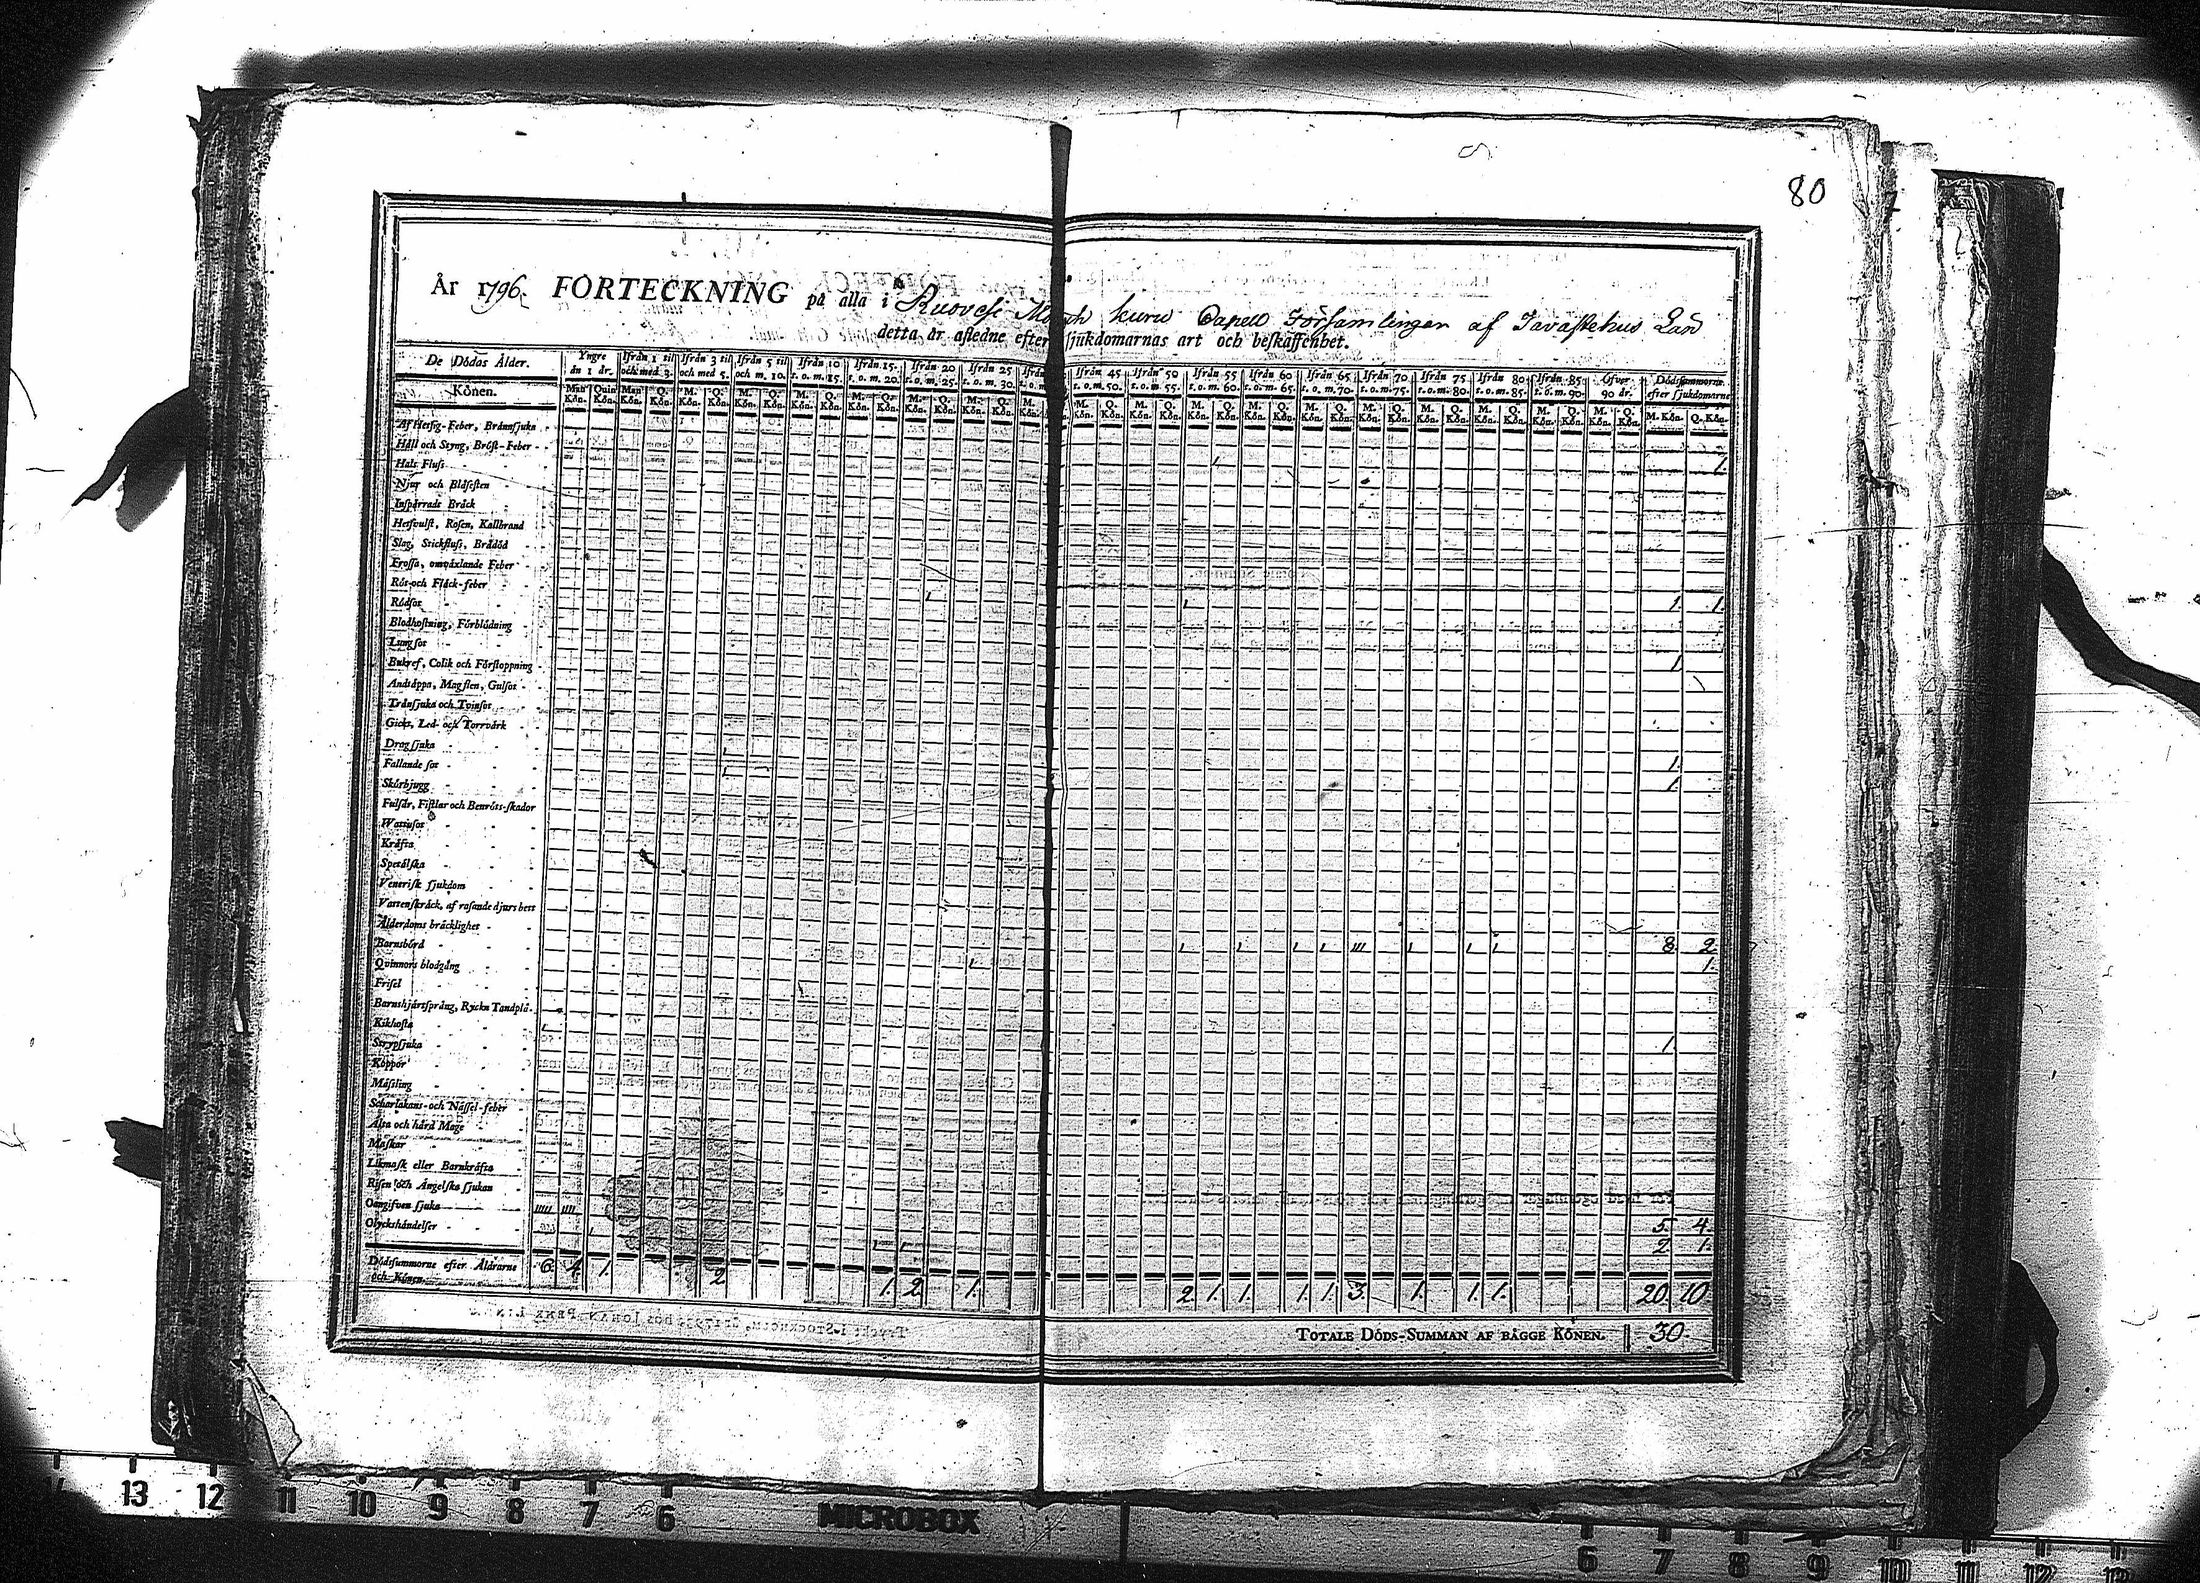 80
År 1796 FÖRTECKNING på alla i Ruovesi Moch kuru Capell Församlingar af Tavastehus Län
detta år afledne efter sjukdomarnas art och beskaffenhet.
De Dödas Ålder. Yngre än 1 år. Ifrån 1 til och med 3. Ifrån 3 til och med 5. Ifrån 5 til och m. 10. Ifrån 10 t. o. m. 15. Ifrån 15. t. o. m. 20. Ifrån 20 t. o. m. 25. Ifrån 25 t. o. m. 30. Ifrån 45 t. o. m. 50. Ifrån 50 t. o. m. 55. Ifrån 55 t. o. m. 60. Ifrån 60 t. o. m. 65. Ifrån 65 t. o. m. 70. Ifrån 70 t. o. m. 75. Ifrån 75 t. o. m. 80. Ifrån 80 t. o. m. 85. Ifrån 85 t. o. m. 90. Öfver 90 år. Dödssummorne efter sjukdomarne
Könen. Man Kön. Quin Kön. Man Kön. Q. Kön. M. Kön. Q. Kön. M. Kön. Q. Kön. M. Kön. Q. Kön. M. Kön. Q. Kön. M. Kön. Q. Kön. M. Kön. Q. Kön. M. Kön. M. Kön. Q. Kön. M. Kön. Q. Kön. M. Kön. Q. Kön. M. Kön. Q. Kön. M. Kön. Q. Kön. M. Kön. Q. Kön. M. Kön. Q. Kön. M. Kön. Q. Kön. M. Kön. Q. Kön. M. Kön. Q. Kön. M. Kön. Q. Kön.
Af Hetsig-Feber, Brännsjuka
Håll och Styng, Bröst-Feber
Hals Fluss 1.
Njur och Blåsesten
Inspärrade Bråck
Hetsvulst, Rosen, Kallbrand
Slag, Stickfluss, Brådöd
Frossa, omväxlande Feber
Röt-och Fläck-feber
Rödsot 1. 1.
Blodhostning, Förblödning
Lungsot
Bukref, Colik och Förstoppning 1
Andtäppa, Magsten, Gulsot
Trånsjuka och Tvinsot
Gickt, Led- och Torrvärk
Dragsjuka
Fallande sot 1.
Skörbjugg 1.
Fulsår, Fistlar och Benröts-skador
Wattusot
Kräfta
Spetälska
Venerisk sjukdom
Vattenskräck, af rasande djurs bett
Ålderdoms bräcklighet
Barnsbörd 8 2
Qvinnors blodgång 1.
Frisel
Barnshjärtsprång, Ryckn Tandplå.
Kikhosta
Strypsjuka 1
Koppor
Mässling
Scharlakans-och Nässel-feber
Älta och hård Mage
Maskar
Likmask eller Barnkräfta
Risen och Ängelska sjukan
Oangifven sjuka 5. 4.
Olyckshändelser 2 1.
Dödssummorne efter Åldrarne och Könen. 6. 4. 1. 2 1. 2. 1. 2. 1. 1. 1. 1. 3. 1. 1. 1. 20. 10
TOTALE DÖDS-SUMMAN AF BÅGGE KÖNEN. 30
13 12 11 10 9 8 7 6 MICROBOX 6 7 8 9 10 11 12 13